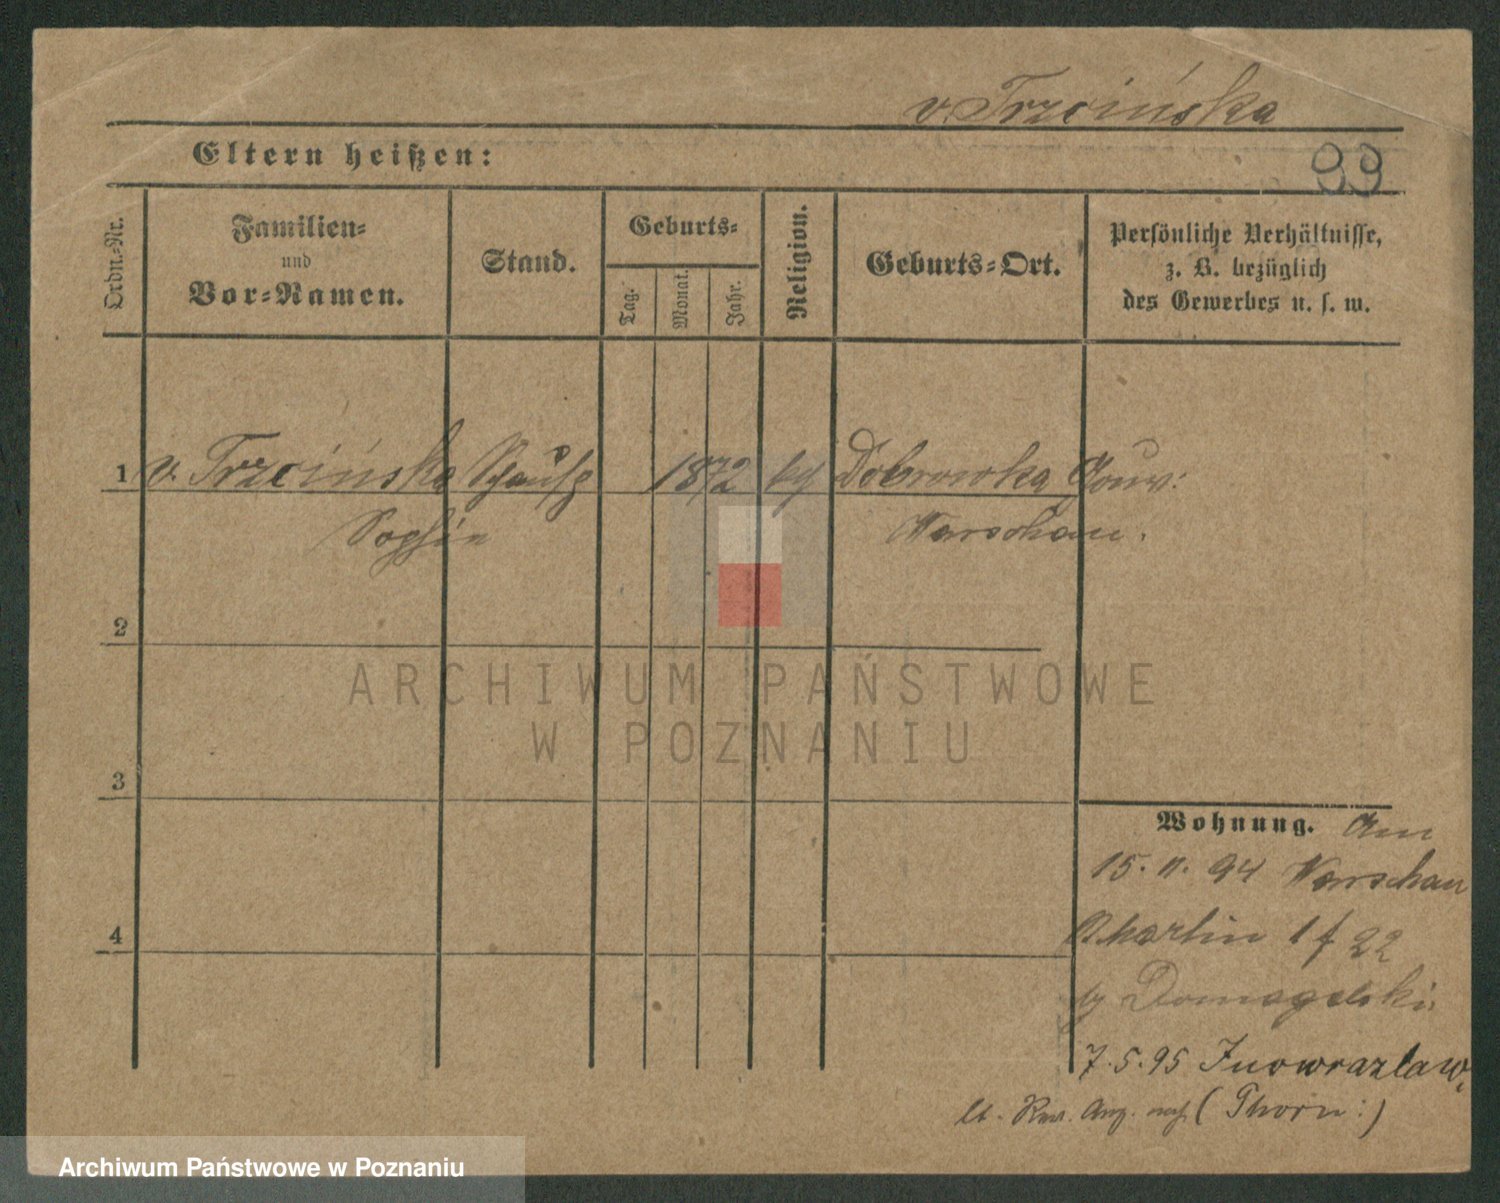 v. Trzcińska
Eltern heißen:
99
Ordn.-Nr.
Familien-
und
Vor-Namen.
Stand.
Geburts-
Tag.
Monat.
Jahr.
Religion.
Geburts-Ort.
Persönliche Verhältnisse,
z. B. bezüglich
des Gewerbes u. s. w.
1 v. Trzcińska 1872 Dobrowka Gouv:
Sophie Warschau.
2
ARCHIWUM PAŃSTWOWE
W POZNANIU
3
Wohnung. Am
15. 11. 94 Warschau
Martin 22
Domagalski.
4
7.5.95 Inowrazlaw,
(Thorn:)
Archiwum Państwowe w Poznaniu